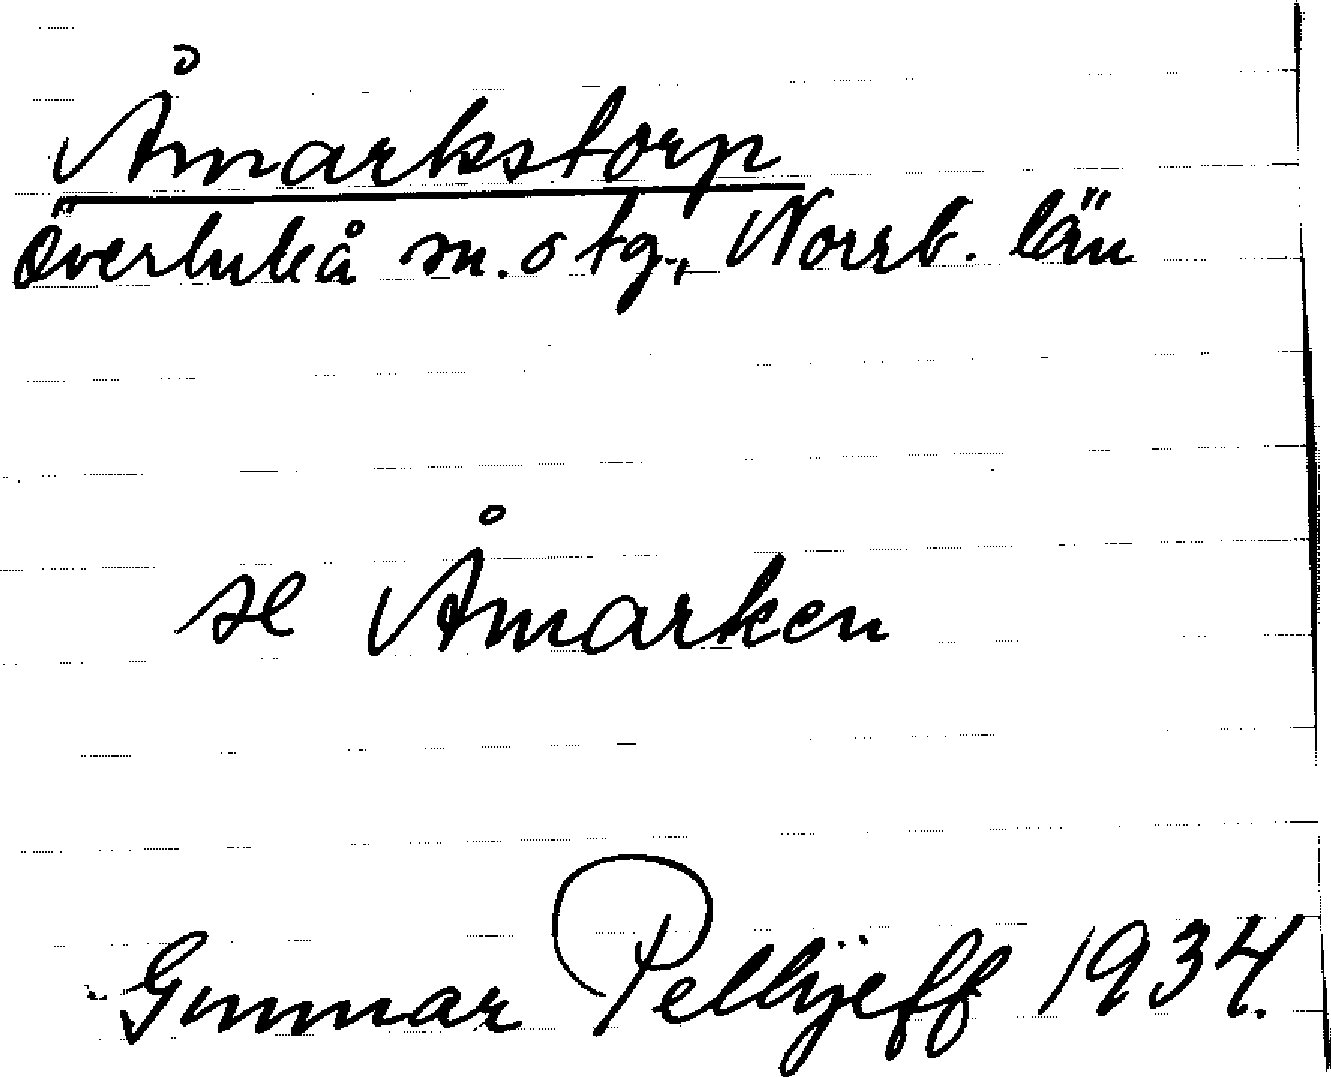 Åmarkstorp
Överluleå sn. o tg., Norrb. län
se Åmarken
Gunnar Pellijeff 1934.